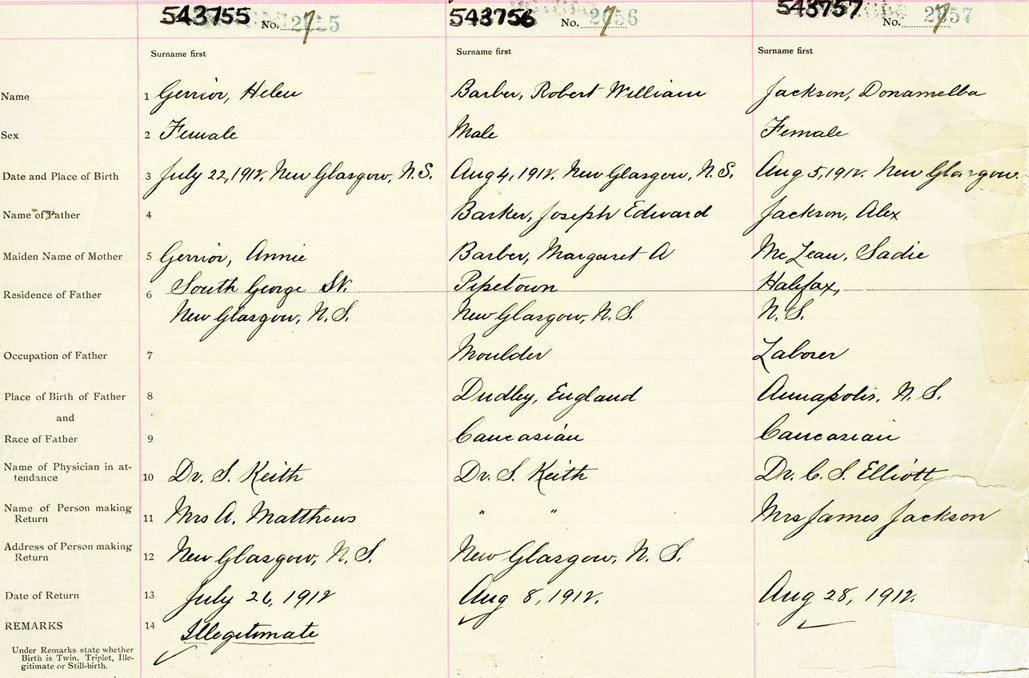 543755 543756 543757
No. No. No.
Surname first Surname first Surname first
Name 1 Gerrior, Helen Barber, Robert William Jackson, Donamella
Sex 2 Female Male Female
Date and Place of Birth 3 July 22, 1912. New Glasgow, N.S. Aug 4, 1912. New Glasgow, N.S. Aug 5, 1912. New Glasgow.
Name of Father 4 Barker, Joseph Edward Jackson, Alex
Maiden Name of Mother 5 Gerrior, Annie Barber, Margaret A McLean, Sadie
Residence of Father 6 South George St. Pipetown Halifax,
New Glasgow, N.S. New Glasgow, N.S. N.S.
Occupation of Father 7 Moulder Laborer
Place of Birth of Father 8 Dudley, England Annapolis, N.S.
and
Race of Father 9 Caucasian Caucasian
Name of Physician in at-
tendance 10 Dr. S. Keith Dr. S. Keith Dr. C. S. Elliott
Name of Person making
Return 11 Mrs A. Matthews " " Mrs James Jackson
Address of Person making
Return 12 New Glasgow, N.S. New Glasgow, N.S.
Date of Return 13 July 26, 1912 Aug 8, 1912. Aug 28, 1912.
REMARKS 14 Illegitimate
Under Remarks state whether
Birth is Twin, Triplet, Ille-
gitimate or Still-birth.